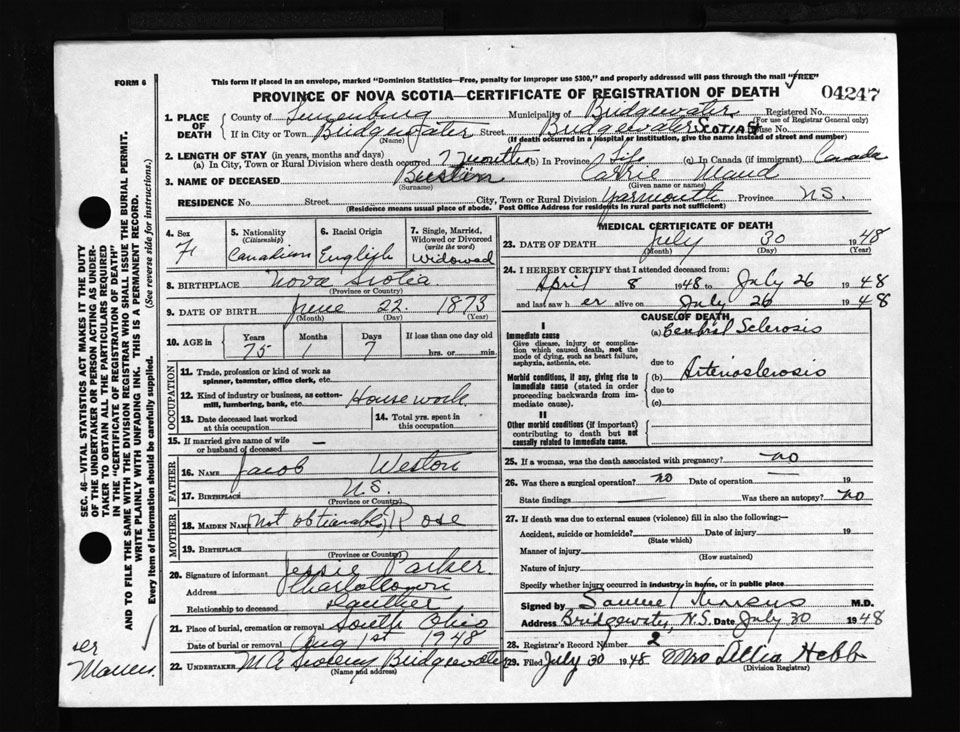 FORM 6
This form if placed in an envelope, marked "Dominion Statistics—Free, penalty for improper use $300," and properly addressed will pass through the mail "FREE"
PROVINCE OF NOVA SCOTIA—CERTIFICATE OF REGISTRATION OF DEATH
04247
1. PLACE OF DEATH
County of Lunenburg Municipality of Bridgewater Registered No.
(For use of Registrar General only)
If in City or Town Bridgewater Street Bridgewater SCOTIA House No.
(Name) (If death occurred in a hospital or institution, give the name instead of street and number)
2. LENGTH OF STAY (in years, months and days)
(a) In City, Town or Rural Division where death occurred 7 months (b) In Province Life (c) In Canada (if immigrant) Canada
3. NAME OF DECEASED Bustin Carrie Maud
(Surname) (Given name or names)
RESIDENCE No. Street City, Town or Rural Division Yarmouth Province N.S.
(Residence means usual place of abode. Post Office Address for residents in rural parts not sufficient)
4. Sex F
5. Nationality (Citizenship) Canadian
6. Racial Origin English
7. Single, Married, Widowed or Divorced (write the word) Widowed
8. BIRTHPLACE Nova Scotia
(Province or Country)
9. DATE OF BIRTH June 22 1873
(Month) (Day) (Year)
10. AGE in Years Months Days If less than one day old
75 1 7 hrs. or min.
OCCUPATION
11. Trade, profession or kind of work as spinner, teamster, office clerk, etc.
12. Kind of industry or business, as cotton-mill, lumbering, bank, etc. Housework
13. Date deceased last worked at this occupation
14. Total yrs. spent in this occupation
15. If married give name of wife or husband of deceased —
FATHER
16. NAME Jacob Weston
17. BIRTHPLACE N.S.
(Province or Country)
MOTHER
18. MAIDEN NAME (not obtainable) Rose
19. BIRTHPLACE
(Province or Country)
20. Signature of informant Jessie Parker
Address Charlottown
Relationship to deceased Dauther
21. Place of burial, cremation or removal South Ohio
Date of burial or removal Aug 1st 1948
22. UNDERTAKER Bridgewater
(Name and address)
MEDICAL CERTIFICATE OF DEATH
23. DATE OF DEATH July 30 1948
(Month) (Day) (Year)
24. I HEREBY CERTIFY that I attended deceased from:
April 8 1948 to July 26 1948
and last saw h er alive on July 26 1948
CAUSE OF DEATH
I
Immediate cause
Give disease, injury or complication which caused death, not the mode of dying, such as heart failure, asphyxia, asthenia, etc.
(a) Cerebral Sclerosis
due to
Morbid conditions, if any, giving rise to immediate cause (stated in order proceeding backwards from immediate cause).
(b) Arteriosclerosis
due to
(c)
II
Other morbid conditions (if important) contributing to death but not causally related to immediate cause.
25. If a woman, was the death associated with pregnancy? no
26. Was there a surgical operation? no Date of operation 19
State findings Was there an autopsy? no
27. If death was due to external causes (violence) fill in also the following:—
Accident, suicide or homicide? Date of injury 19
(State which)
Manner of injury
(How sustained)
Nature of injury
Specify whether injury occurred in industry, in home, or in public place
Signed by M.D.
Address Bridgewater, N.S. Date July 30 1948
28. Registrar's Record Number 2
29. Filed July 30 1948 Mrs Hebb
(Division Registrar)
SEC. 46—VITAL STATISTICS ACT MAKES IT THE DUTY
OF THE UNDERTAKER OR PERSON ACTING AS UNDER-
TAKER TO OBTAIN ALL THE PARTICULARS REQUIRED
IN THE "CERTIFICATE OF REGISTRATION OF DEATH"
AND TO FILE THE SAME WITH THE DIVISION REGISTRAR WHO SHALL ISSUE THE BURIAL PERMIT.
WRITE PLAINLY WITH UNFADING INK. THIS IS A PERMANENT RECORD.
Every item of information should be carefully supplied. (See reverse side for instructions.)